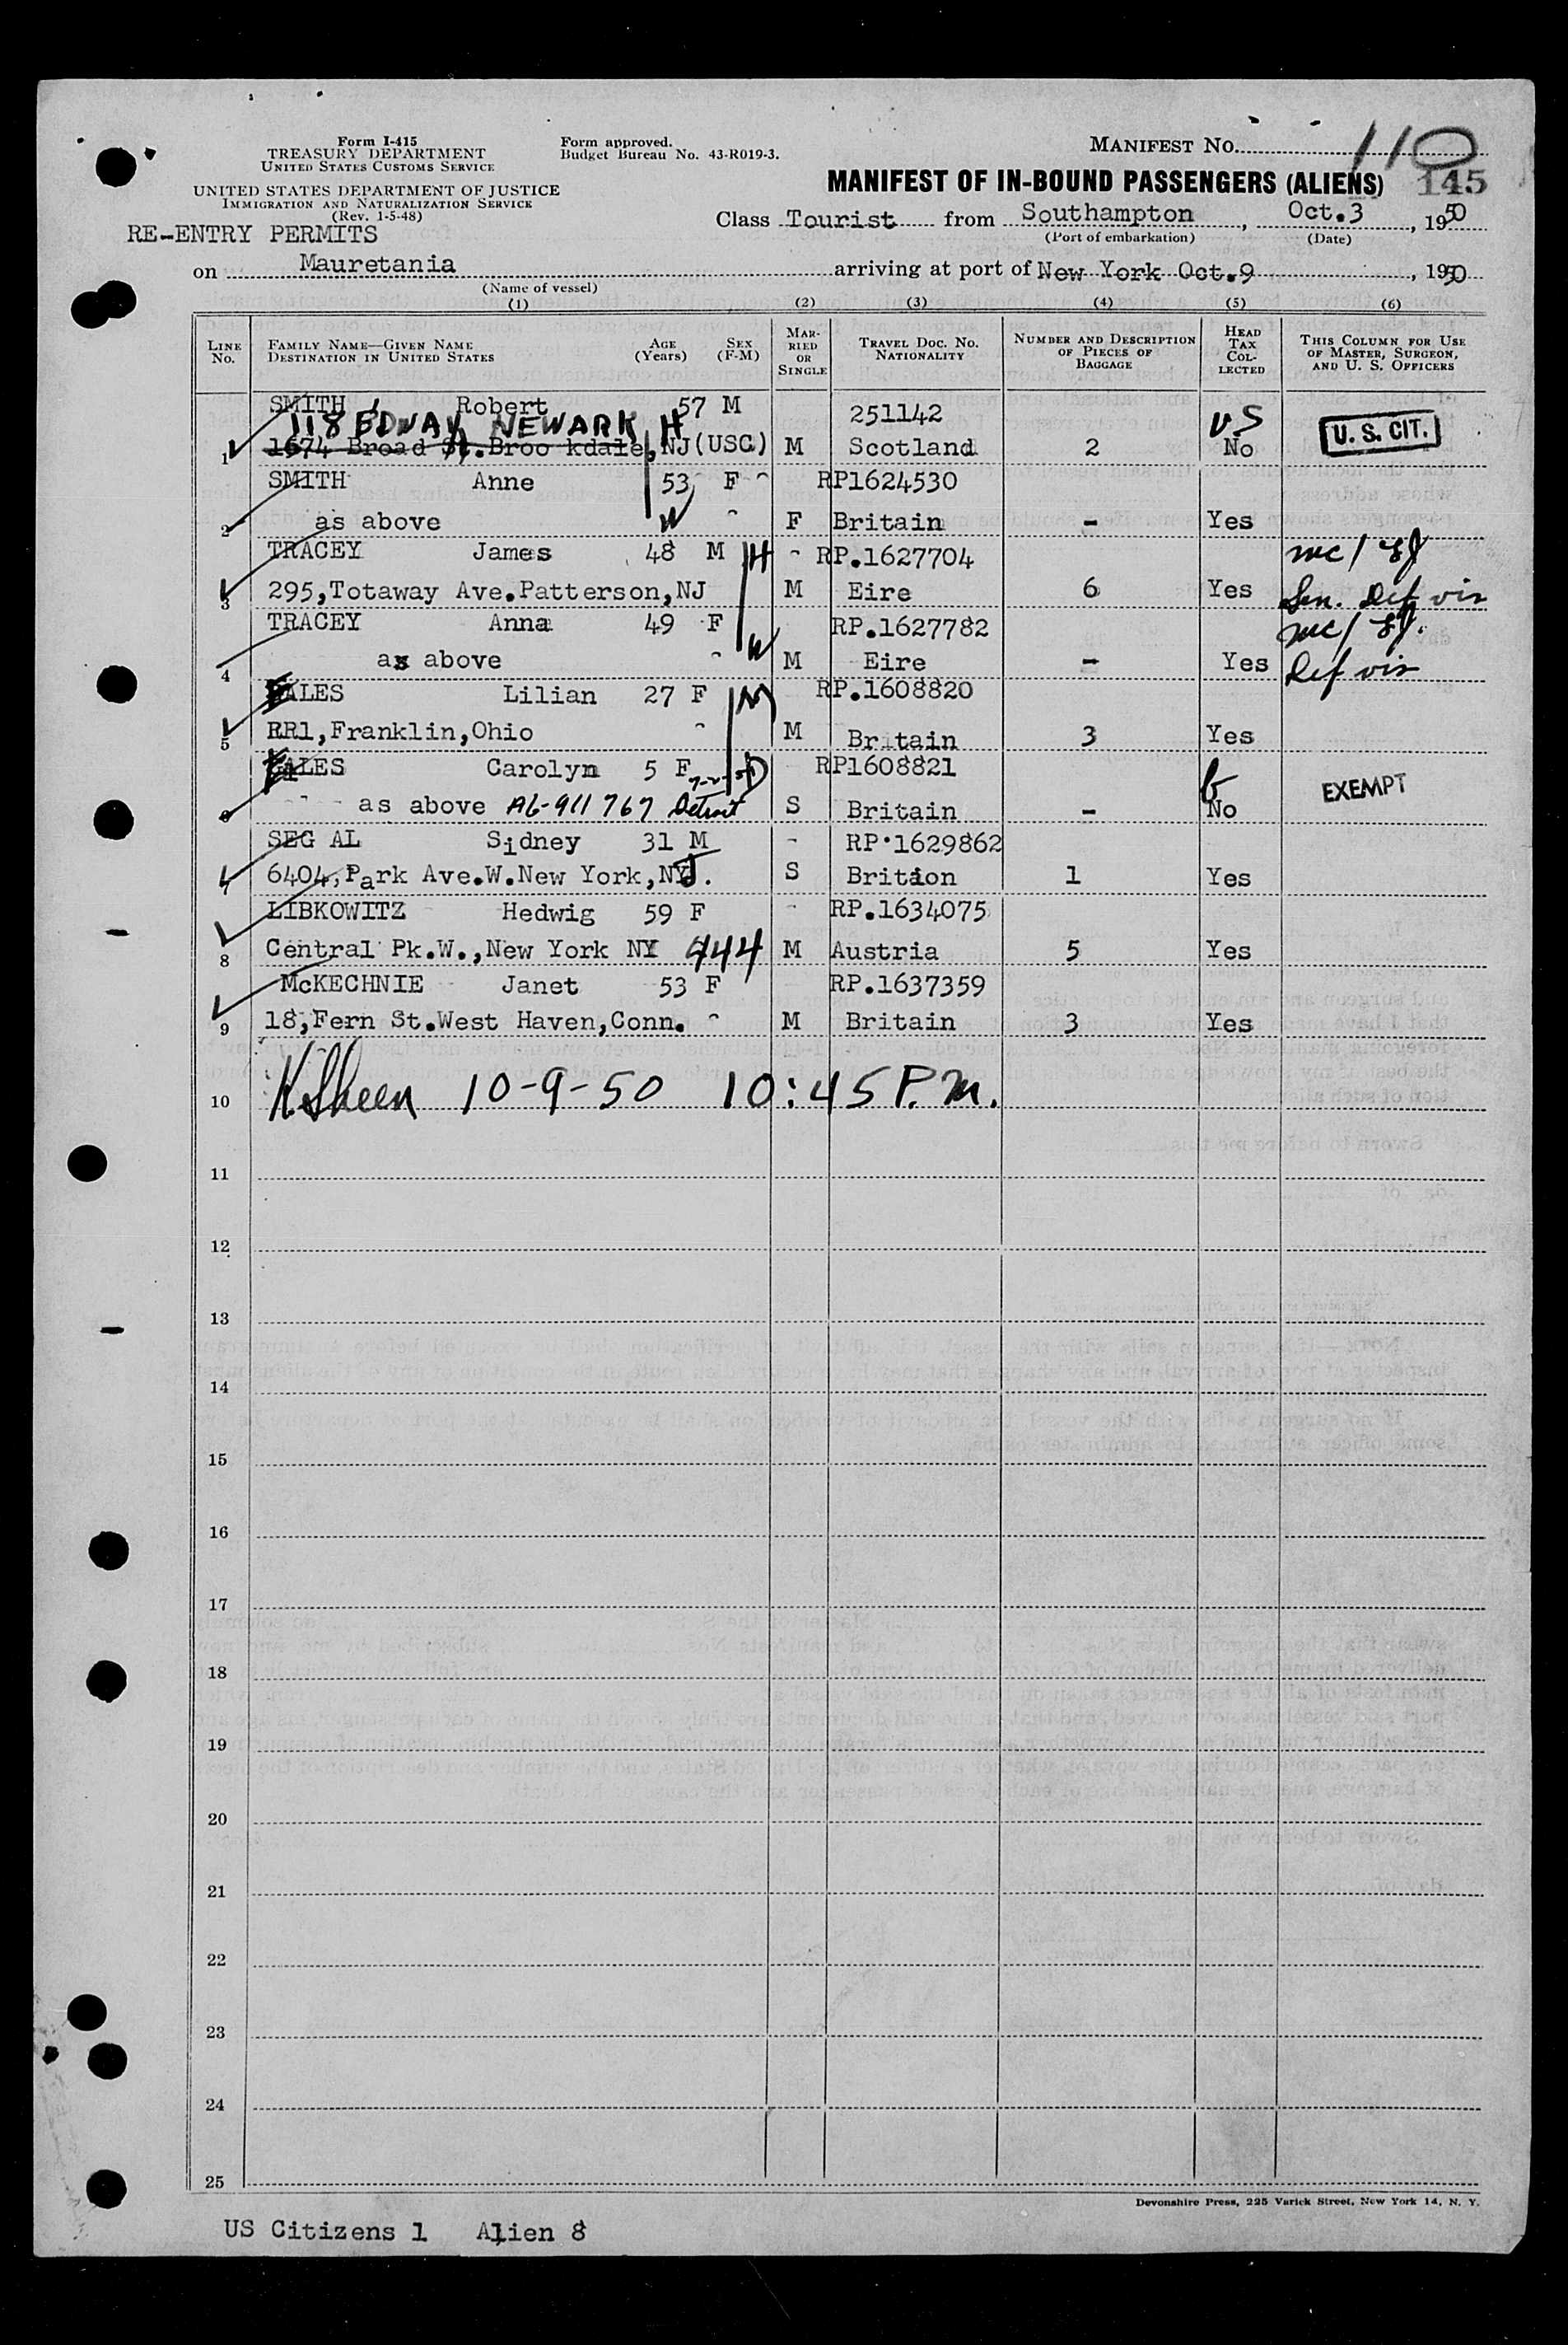 Form I-415
TREASURY DEPARTMENT
UNITED STATES CUSTOMS SERVICE
UNITED STATES DEPARTMENT OF JUSTICE
IMMIGRATION AND NATURALIZATION SERVICE
(Rev. 1-5-48)
RE-ENTRY PERMITS
Form approved.
Budget Bureau No. 43-R019-3.
MANIFEST No. 110
MANIFEST OF IN-BOUND PASSENGERS (ALIENS) 145
Class Tourist from Southampton, Oct.3, 1950
(Port of embarkation) (Date)
on Mauretania arriving at port of New York Oct.9, 1950
(Name of vessel)
(1) (2) (3) (4) (5) (6)
LINE No. FAMILY NAME—GIVEN NAME DESTINATION IN UNITED STATES AGE (Years) SEX (F-M) MARRIED OR SINGLE TRAVEL DOC. NO. NATIONALITY NUMBER AND DESCRIPTION OF PIECES OF BAGGAGE HEAD TAX COLLECTED THIS COLUMN FOR USE OF MASTER, SURGEON, AND U. S. OFFICERS
SMITH Robert 57 M 251142
118 EDWAY NEWARK H US U. S. CIT.
1 1674 Broad St.Broo kdale,NJ(USC) M Scotland 2 No
SMITH Anne 53 F RP1624530
2 as above W F Britain - Yes
TRACEY James 48 M H RP.1627704
3 295,Totaway Ave.Patterson,NJ M Eire 6 Yes Sen. Def vis
TRACEY Anna 49 F RP.1627782
4 as above W M Eire - Yes Def vis
ALES Lilian 27 F M RP.1608820
5 RR1,Franklin,Ohio M Britain 3 Yes
ALES Carolyn 5 F D RP1608821
6 as above A6-911 767 Detroit S Britain - No EXEMPT
SEG AL Sidney 31 M RP.1629862
7 6404,Park Ave.W.New York,NJ. S Brition 1 Yes
LIBKOWITZ Hedwig 59 F RP.1634075
8 Central Pk.W.,New York NY 444 M Austria 5 Yes
McKECHNIE Janet 53 F RP.1637359
9 18,Fern St.West Haven,Conn. M Britain 3 Yes
10 K.Sheen 10-9-50 10:45 P.M.
11
12
13
14
15
16
17
18
19
20
21
22
23
24
25
Devonshire Press, 225 Varick Street, New York 14, N. Y.
US Citizens 1 Alien 8